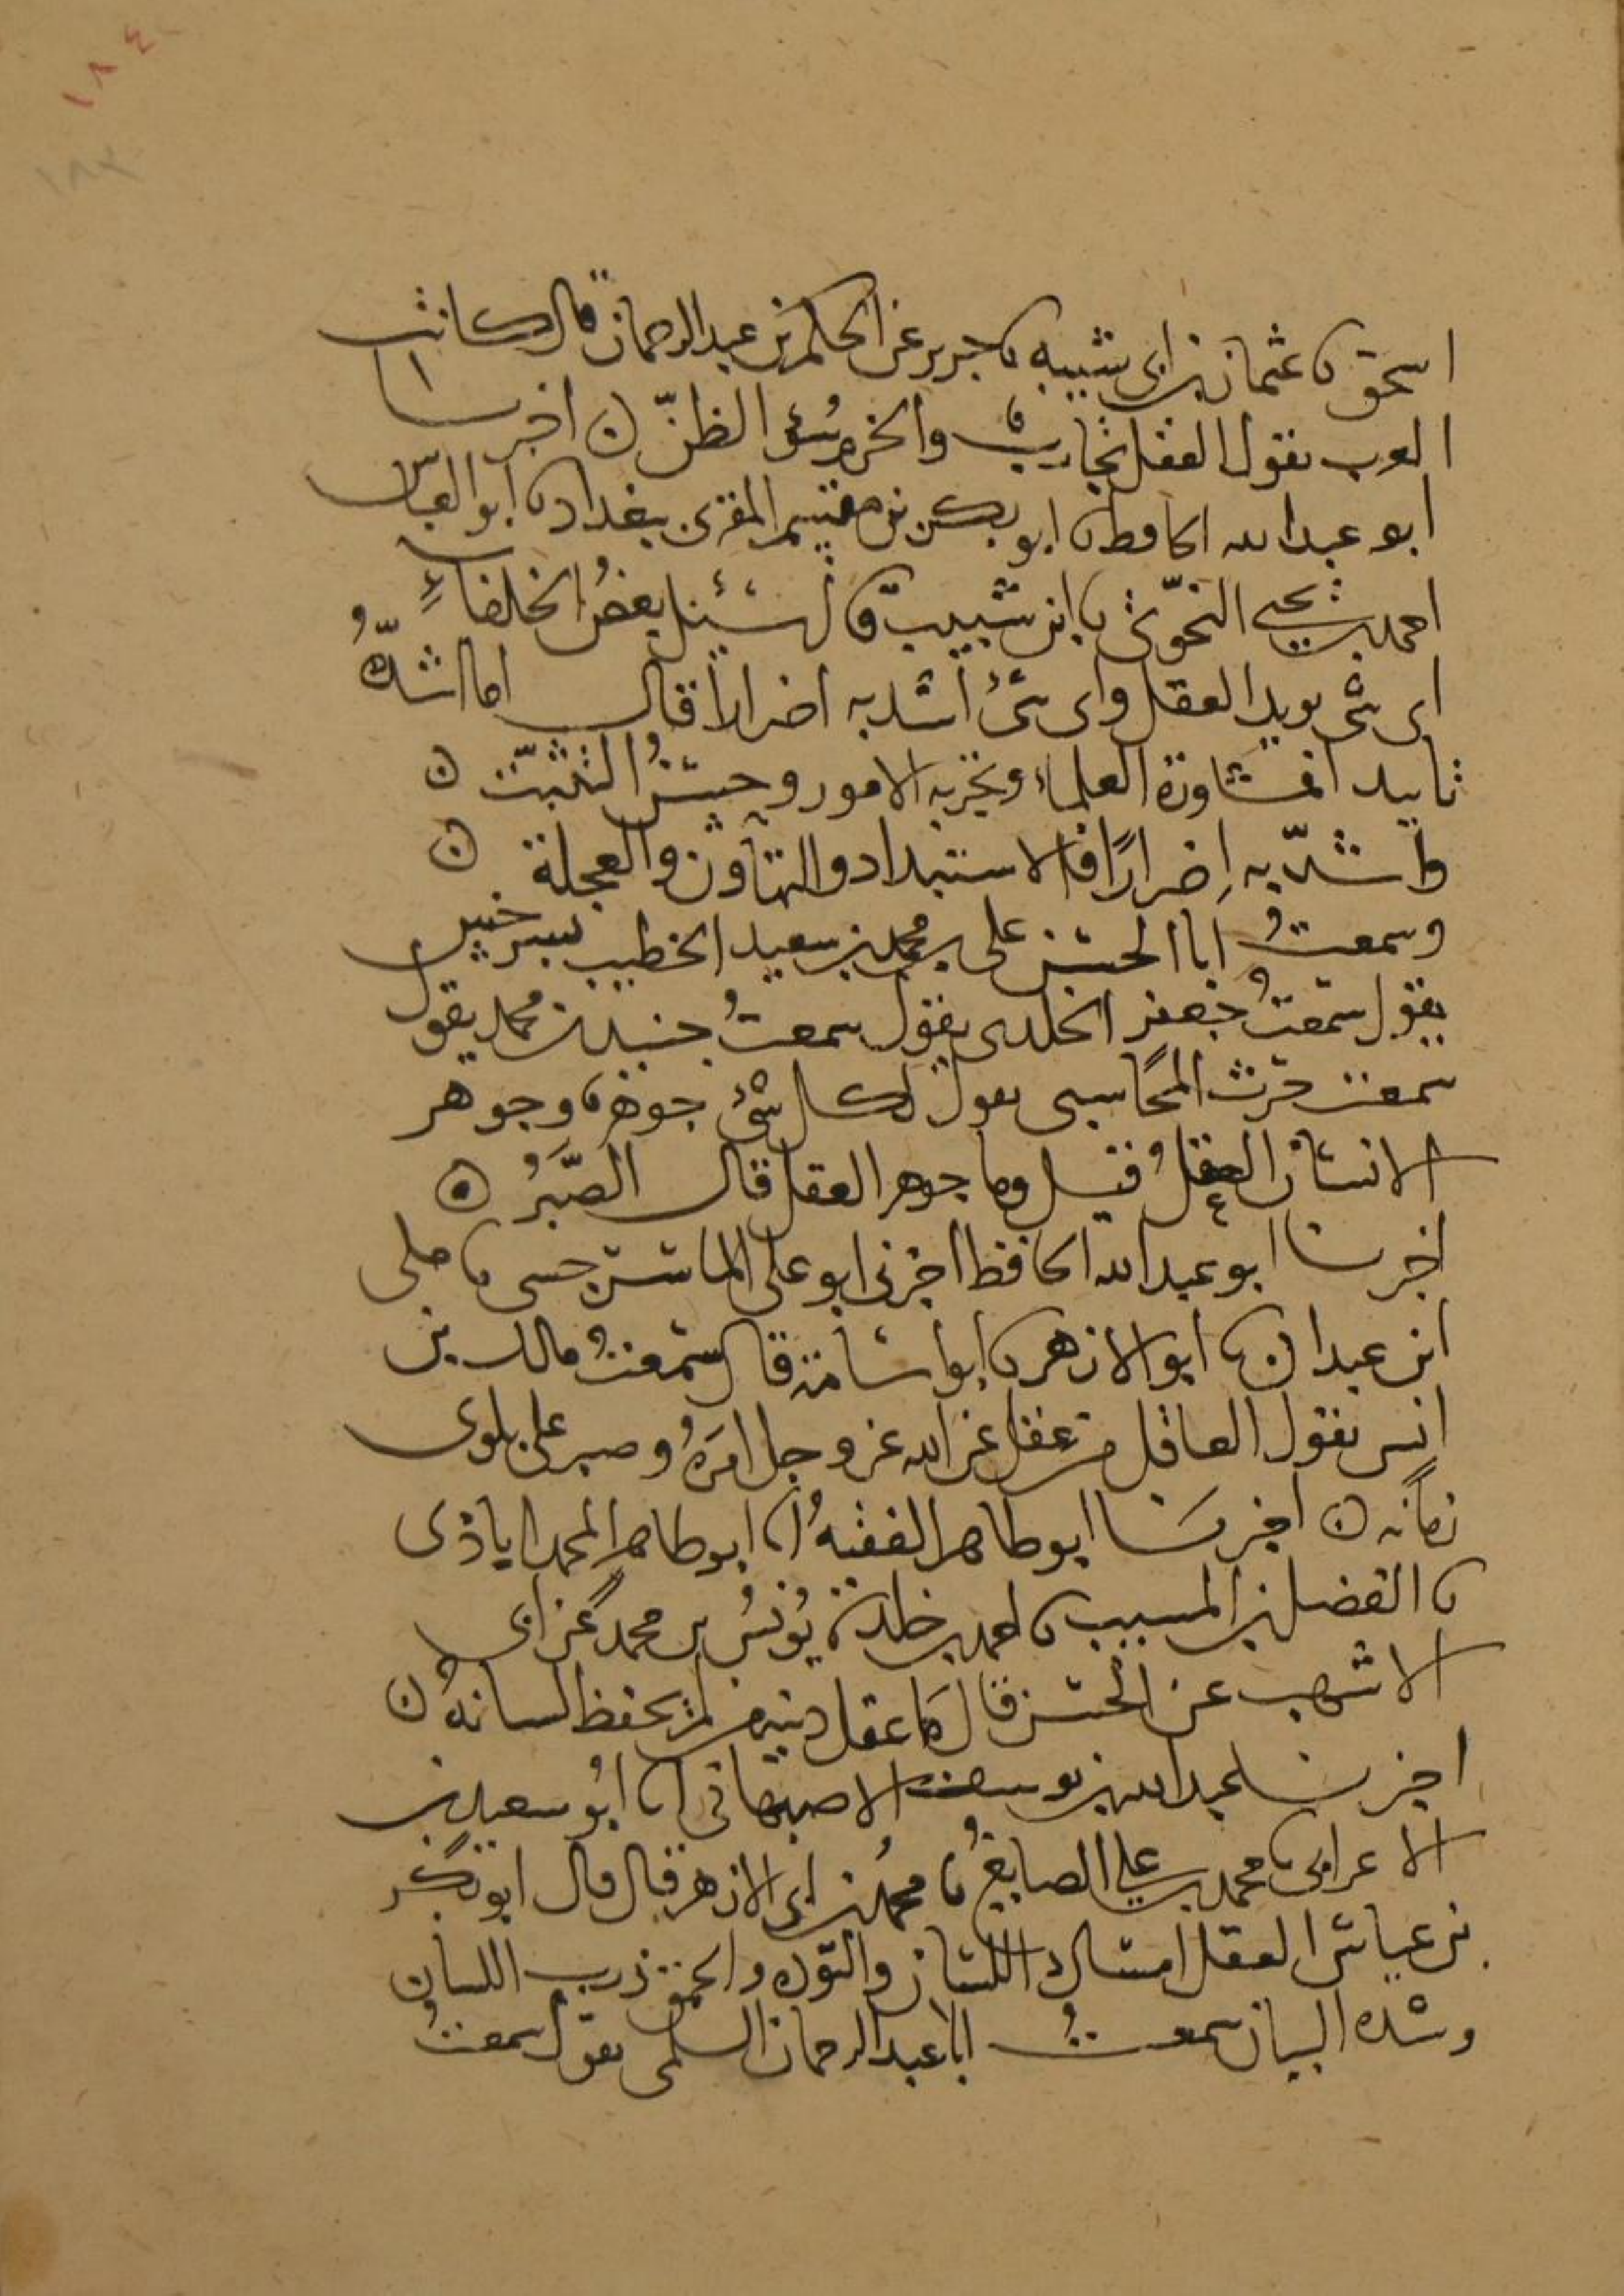 ١٨٤
١٨٣
اسحق ثنا عثمان بن ابى شيبه ثنا جرير عن الحكم بن عبد الرحمان قال كانت
العرب تقول العقل تجارب والحزم سُوء الظنّ ن اخبرنا
ابو عبد الله الحافظ ثنا ابو بكر بن مقسم المقرى ببغداد ثنا ابو العباس
احمد بن يحيى النحوىّ ثنا ابن شبيب قال سُئل بعضُ الخلفاءِ
اى شئ يويد العقل واى شئ اشد به اضرارا قال اما اشدّهُ
تاييدا فمشاورة العلماء وتجربه الامور وحسنُ التثبّت ن
واشدّ به اِضرارًا فالاستبداد والتهاون والعجلة ن
وسمعتُ ابا الحسن على بن محمد بن سعيد الخطيب بسرخس
يقول سمعتُ جعفر الخلدى يقول سمعتُ جنيد بن محمد يقول
سمعت حرث المحاسبى يقول لكل شئ جوهر وجوهر
الانسان العقلُ فقيل وما جوهر العقل قال الصَّبرُ ن
اخبرنا ابو عبد الله الحافظ اخبرنى ابو على الماسرجسى ثنا مكى
ابن عبدان ثنا ابو الازهر ثنا ابو اسامة قال سمعتُ مالك بن
انس يقول العاقل من عقل عن الله عز وجل امرَهُ وصبر على بلوى
زمانه ن اخبرنَا ابو طاهر الفقيهُ انا ابو طاهر المحمداباذى
ثنا الفضل بن المسيب ثنا احمد بن خلد ثنا يُونسُ بن محمد عن ابى
الاشهب عن الحسن قال ما عقل دينه من لم يحفظ لسانهُ ن
اخبرنا عبد الله بن يوسف الاصبهانى انا ابُو سعيد بن
الاعرابى ثنا محمد بن على الصايغُ ثنا محمد بن ابى الازهر قال قال ابو بكر
بن عياش العقل امساك اللسان والتوده والحمق ذرب اللسان
وشده البيان سمعتُ ابا عبد الرحمان السلمى يقول سمعتُ